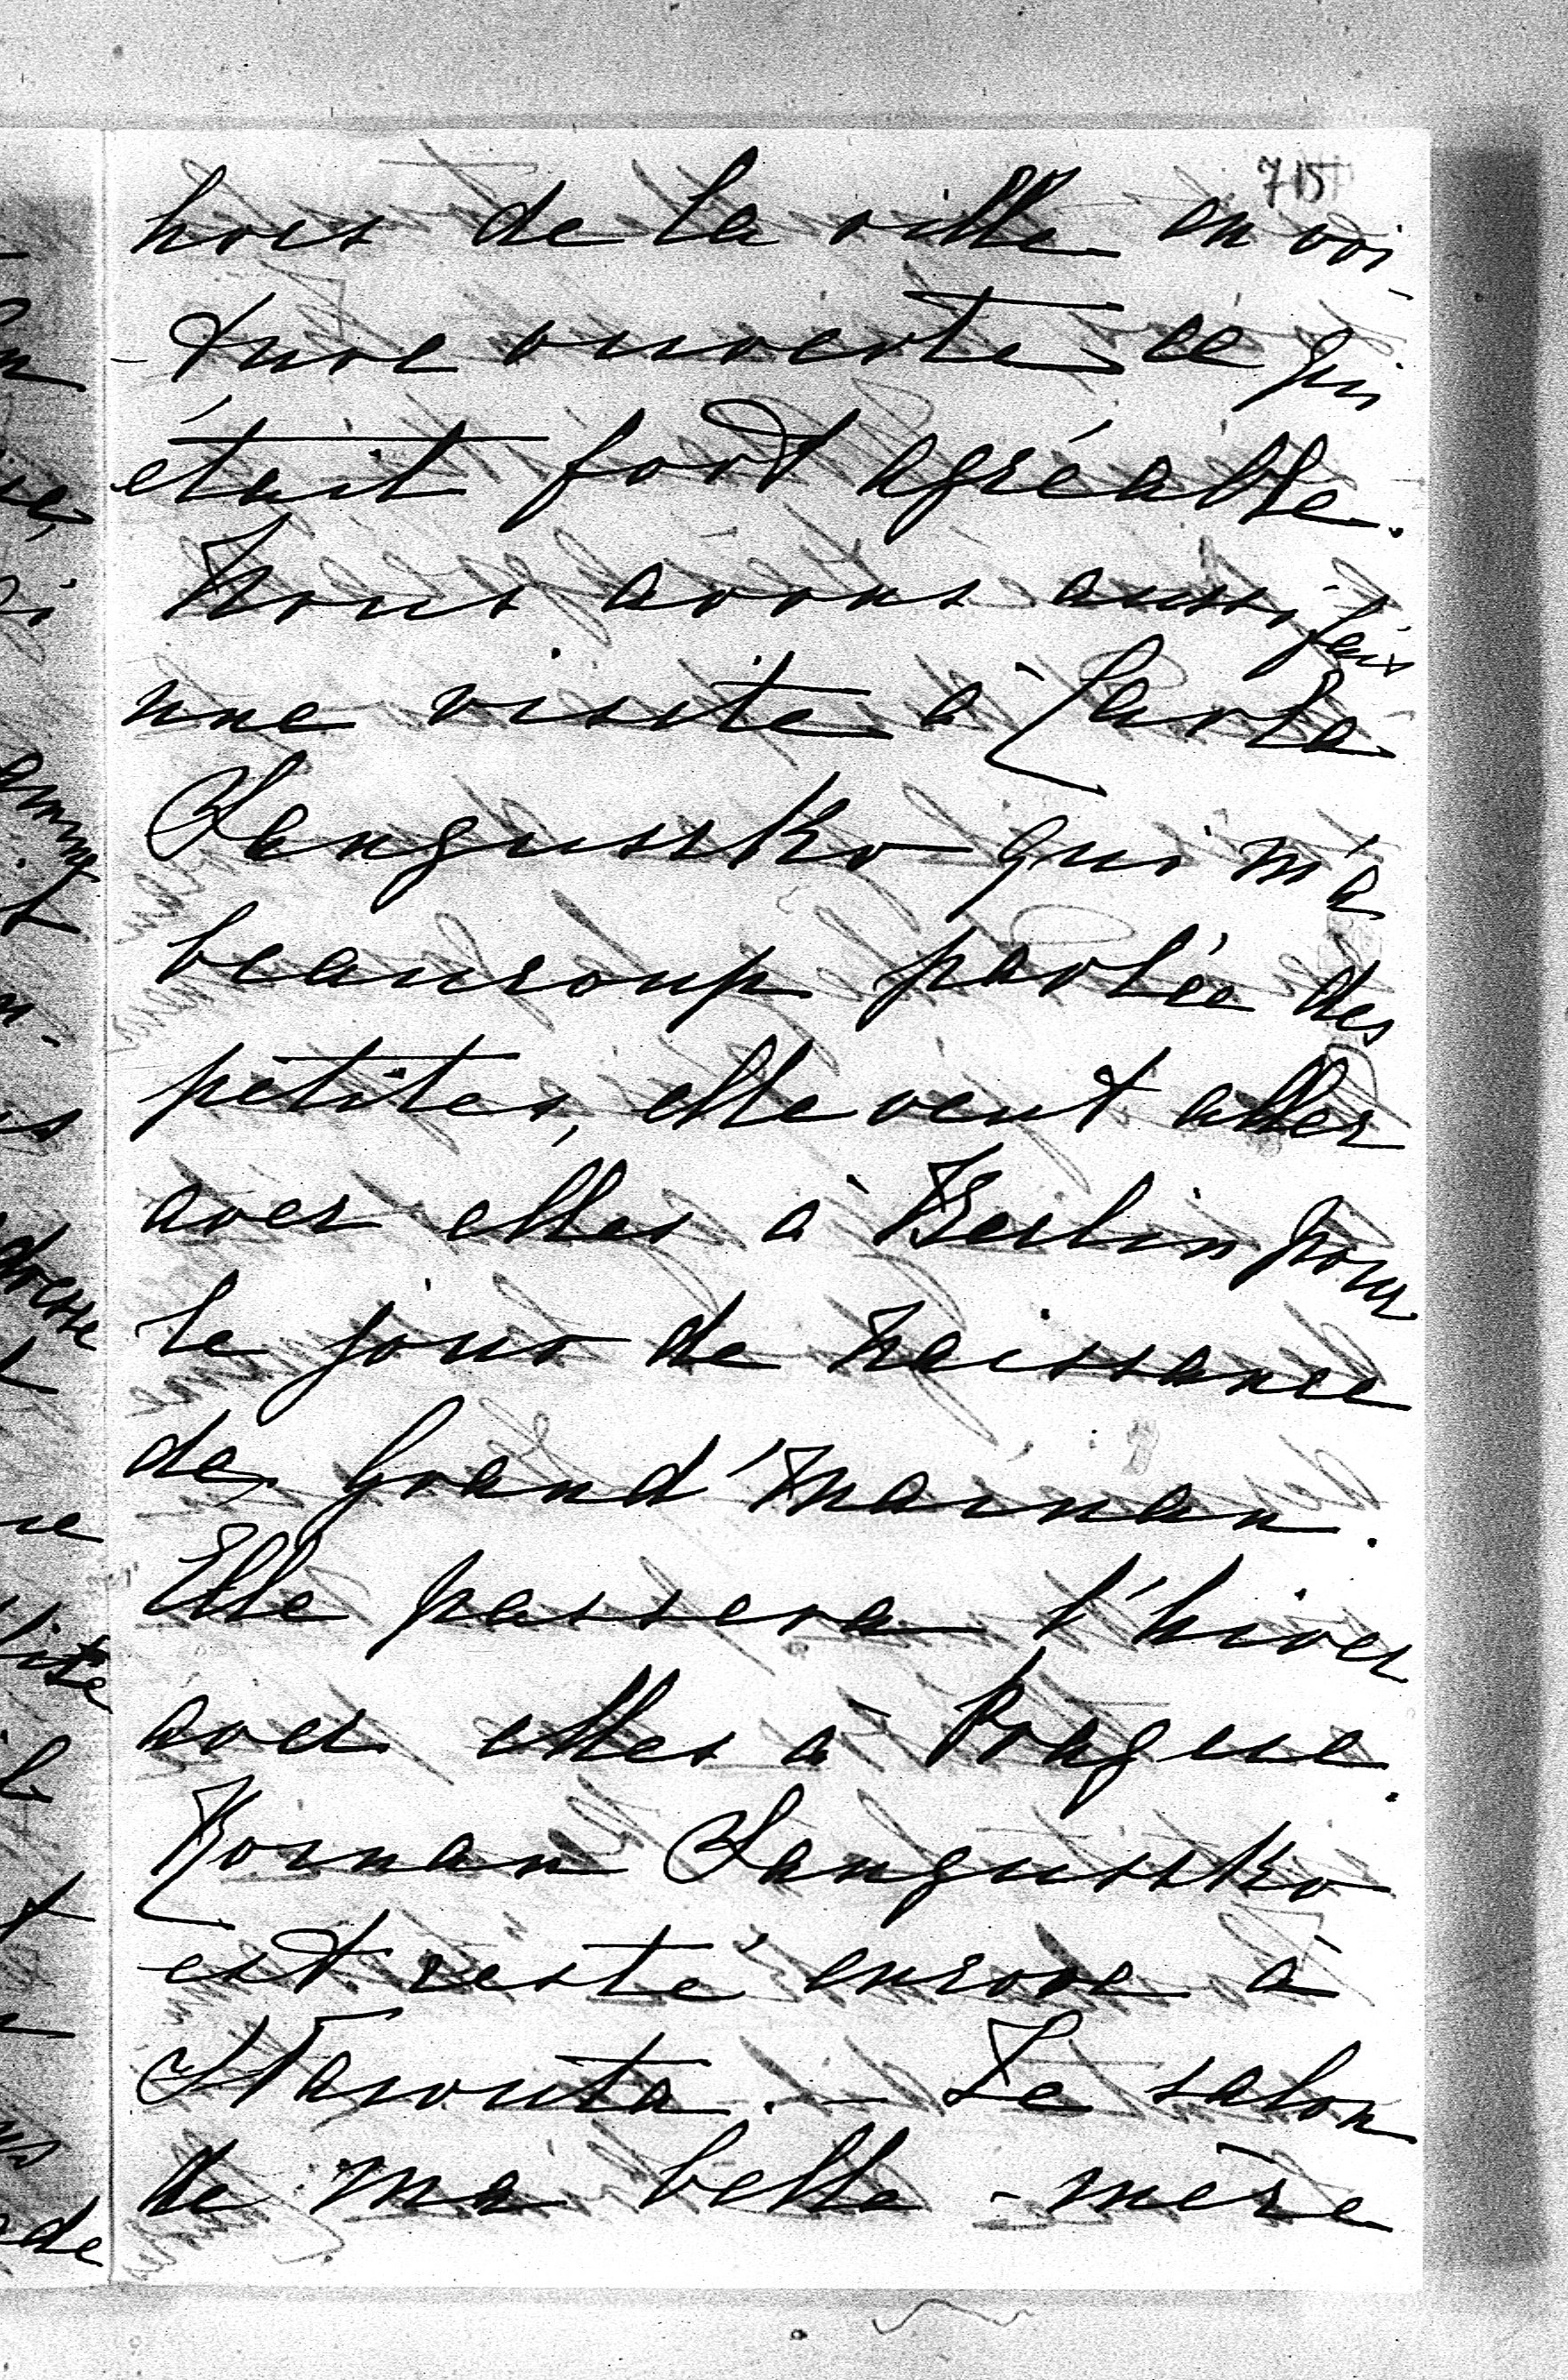 715
hors de la ville en voi-
-ture ouverte ce qui
était fort agréable.
Nous avons aussi fait
une visite à Carla
Sangussko qui m'a
beaucoup parlée des
petites, elle veut aller
avec elles à Berlin pour
le jour de naissance
de Grand'maman.
Elle passera l'hiver
avec elles à Prague.
Roman Sangussko
est resté encore à
Slavouta. – Le salon
de ma belle-mère